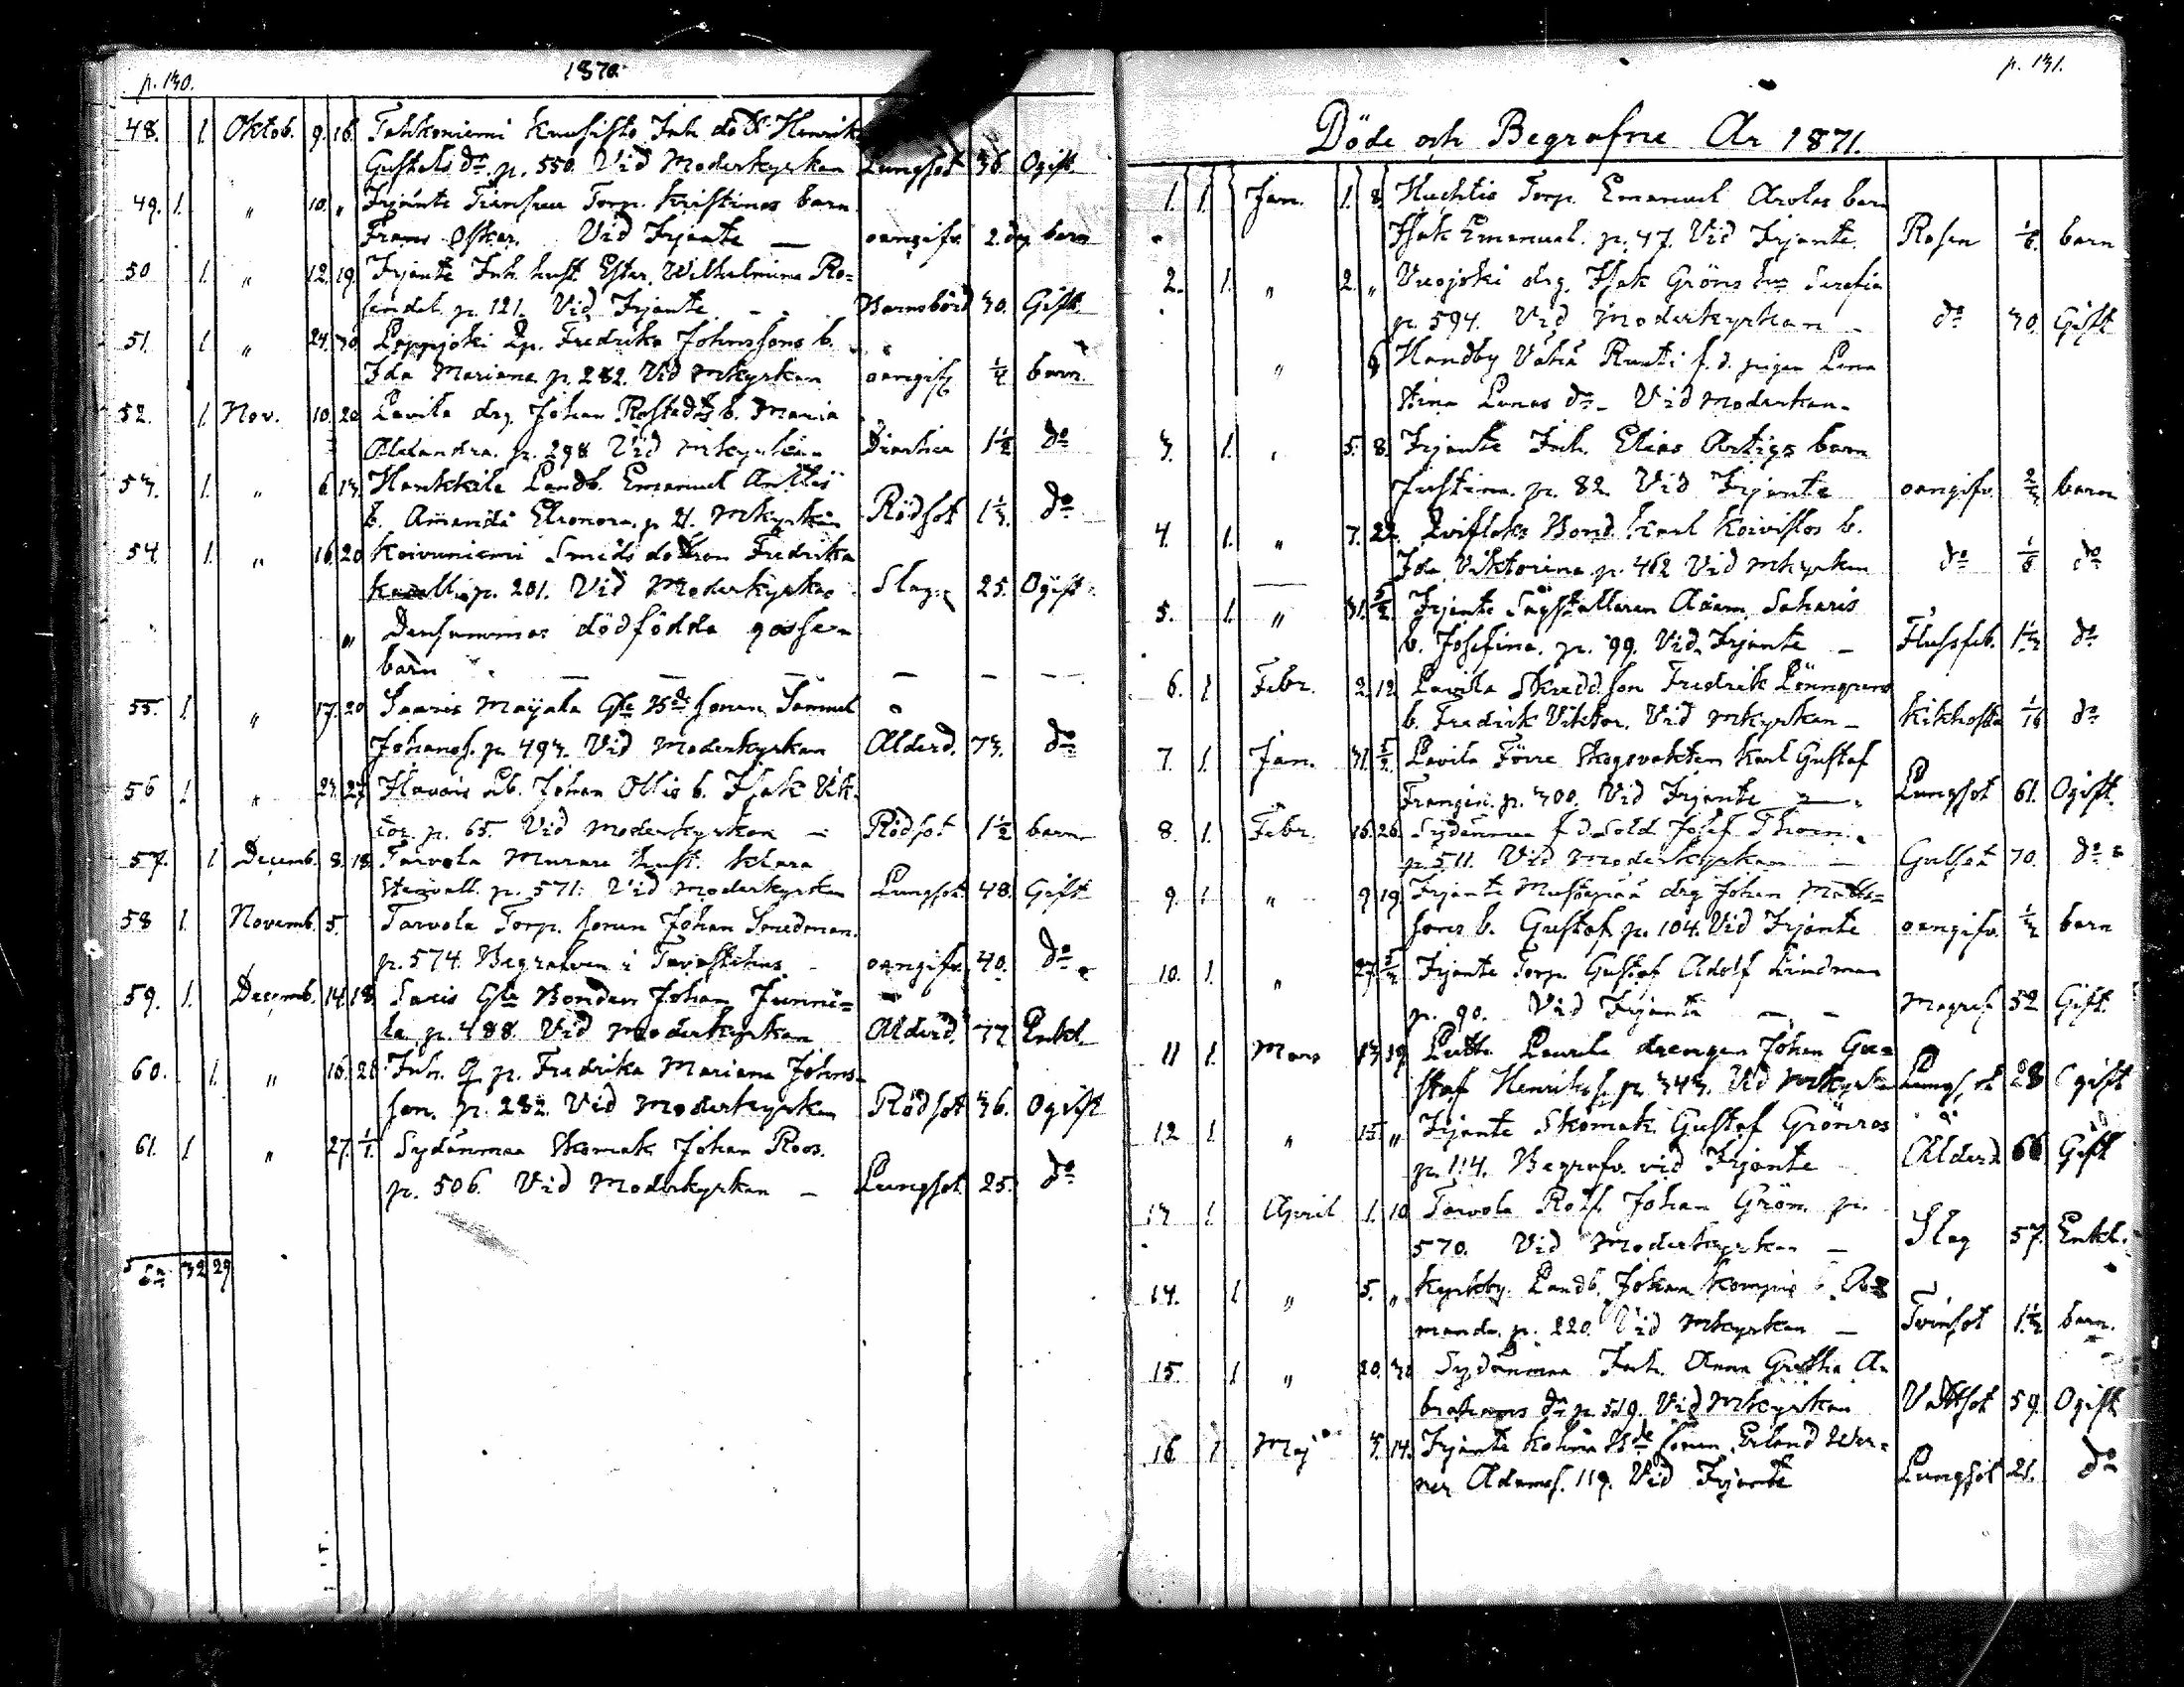 p. 130.
1870
48. 1. Oktob. 9. 16. Tahkoniemi Knusisto Inh. dottr Henrika
Gustafs dr. p. 550. Vid Moderkyrkan Lungsot 36 Ogift
49. 1. " 10. " Irjante Torp. Kristinas barn
Frans Oskar. Vid Irjante — oangifv. 2. dag barn
50 1. " 12. 19. Irjante Inh. hust. Ester Wilhelmina Ro-
sendal p. 121. Vid Irjante - - Barnsbörd 30. Gift.
51. 1. " 24. 30 Leppijoki Qp. Fredrika Johnssons b.
Ida Mariana p. 282. Vid Mkyrkan oangifv 1/4 barn.
52. 1. Nov. 10. 20 Lavila drg. Johan Rostedts b. Maria
Aldandra. p. 298 Vid Mkyrkan Diarhea 1 1/2 do
53. 1. " 6 13. Hankkila Landb. Emanuel Anttis
b. Amanda Eleonora. p. 21. Mkyrkan Rödsot 1 1/3. do
54. 1. " 16 20 Koivuniemi Smeds dottren Fredrika
p. 201. Vid Moderkyrkan Slag 25. Ogift.
" Densammas dödfödda gosse-
barn — — — — — —
55. 1. " 17. 20 Saaris Mayala Gle Bde sonen Samuel
Johanss. p. 493. Vid Moderkyrkan Alderd. 73. do
56 1. " 23. 27 Hawois Lb. Johan Ollis b. Isak Vik-
tor. p. 65. Vid Moderkyrkan — Rödsot 1 1/2 barn
57. 1 Decemb. 8. 18. Tarvola Murare hust. Klara
Stenvall. p. 571. Vid Moderkyrkan Lungsot. 48. Gift
58 1. Novemb. 5. Tarvola Torp. sonen Johan Smedman.
p. 574. Begrafven i Tavastehus - oangifv. 40. do
59. 1. Decemb. 14. 18. Saris Gle Bonden Johan Junni-
la p. 488. Vid Moderkyrkan Alderd. 77 Enkl.
60. 1. " 16. 26 Inh. Q. p. Fredrika Mariana Johns-
son. p. 282. Vid Moderkyrkan Rödsot 36. Ogift
61. 1 " 27. 1/1. Sydänmaa Skomak. Johan Roos.
p. 506. Vid Moderkyrkan — Lungsot. 25. do
Sa 32 29
p. 131.
Döde och Begrafne År 1871.
1. 1. Jan. 1. 8. Huchtis Torp. Emanuel Arolas barn
Isak Emanuel. p. 47. Vid Irjante. Rosen 1/6. barn
2. 1. " 2. " Vuojoki drg. Isak Gröns hu Serafia
p. 594. Vid Moderkyrkan — do 30. Gift
" 6 Handby Vähä Ruuti f. d. pigan Lena
Stina Lunas dr. Vid Moderkan.
3. 1. " 5. 8. Irjante Inh. Elias Artigs barn
Justina. p. 82. Vid Irjante oangifv. 2/3 barn
4. 1. " 7. 22. Bond. Karl Koivistos b.
Ida Viktorina p. 462 Vid Mkyrkan do 1/6 do
5. 1. " 31. 5/2. Irjante Sågställaren Adam Saharis
b. Josefina. p. 99. Vid Irjante — Flussfeb. 1 1/2 do
6. 1 Febr. 2. 12. Lavila Skredd. son Fredrik Lönnqvens
b. Fredrik Viktor. Vid Mkyrkan — Kikhosta 1/16 do
7. 1. Jan. 31. 5/2. Lavila Förre Skogsvakten Karl Gustaf
Frangén. p. 300. Vid Irjante — Lungsot 61. Ogift
8. 1. Febr. 16. 26. Sydänmaa f. d. Sold. Josef Thom.
p. 511. Vid Moderkyrkan — Gulsot 70. do
9. 1 " 9. 19. Irjante Mustapää drg Johan Matts-
sons b. Gustaf. p. 104. Vid Irjante oangifv. 1/2 barn
10. 1. " 27. 5/3. Irjante Torp. Gustaf Adolf Lindman
p. 90. Vid Irjante — — Magref 52 Gift.
11 1. Mars 13. 19. Lutta Laurila drengen Johan Gu-
staf Henrikss. p. 343. Vid Mkyrkan Lungsot 28 Ogift
12 1. " 15. " Irjante Skomak. Gustaf Grönros
p. 114. Begrafv. vid Irjante Alderd. 66 Gift
13 1. April 1. 10 Tarvola Rotf. Johan Gröm. p.
570. Vid Moderkyrkan — Slag 57. Enkl.
14. 1 " 5. " Kyrkby Landb. Johan Komppis b. A-
manda. p. 220. Vid Mkyrkan — Tvinsot 1 1/2 barn.
15 1 " 20. 30 Sydänmaa Inh. Anna Gretha A-
brahams dr. p. 519. Vid Mkyrkan Vattsot 59. Ogift
16 1 Maj 3. 14. Irjante Kohna Bde sonen Erland Wer-
ner Adamss. 119. Vid Irjante Lungsot 21. do